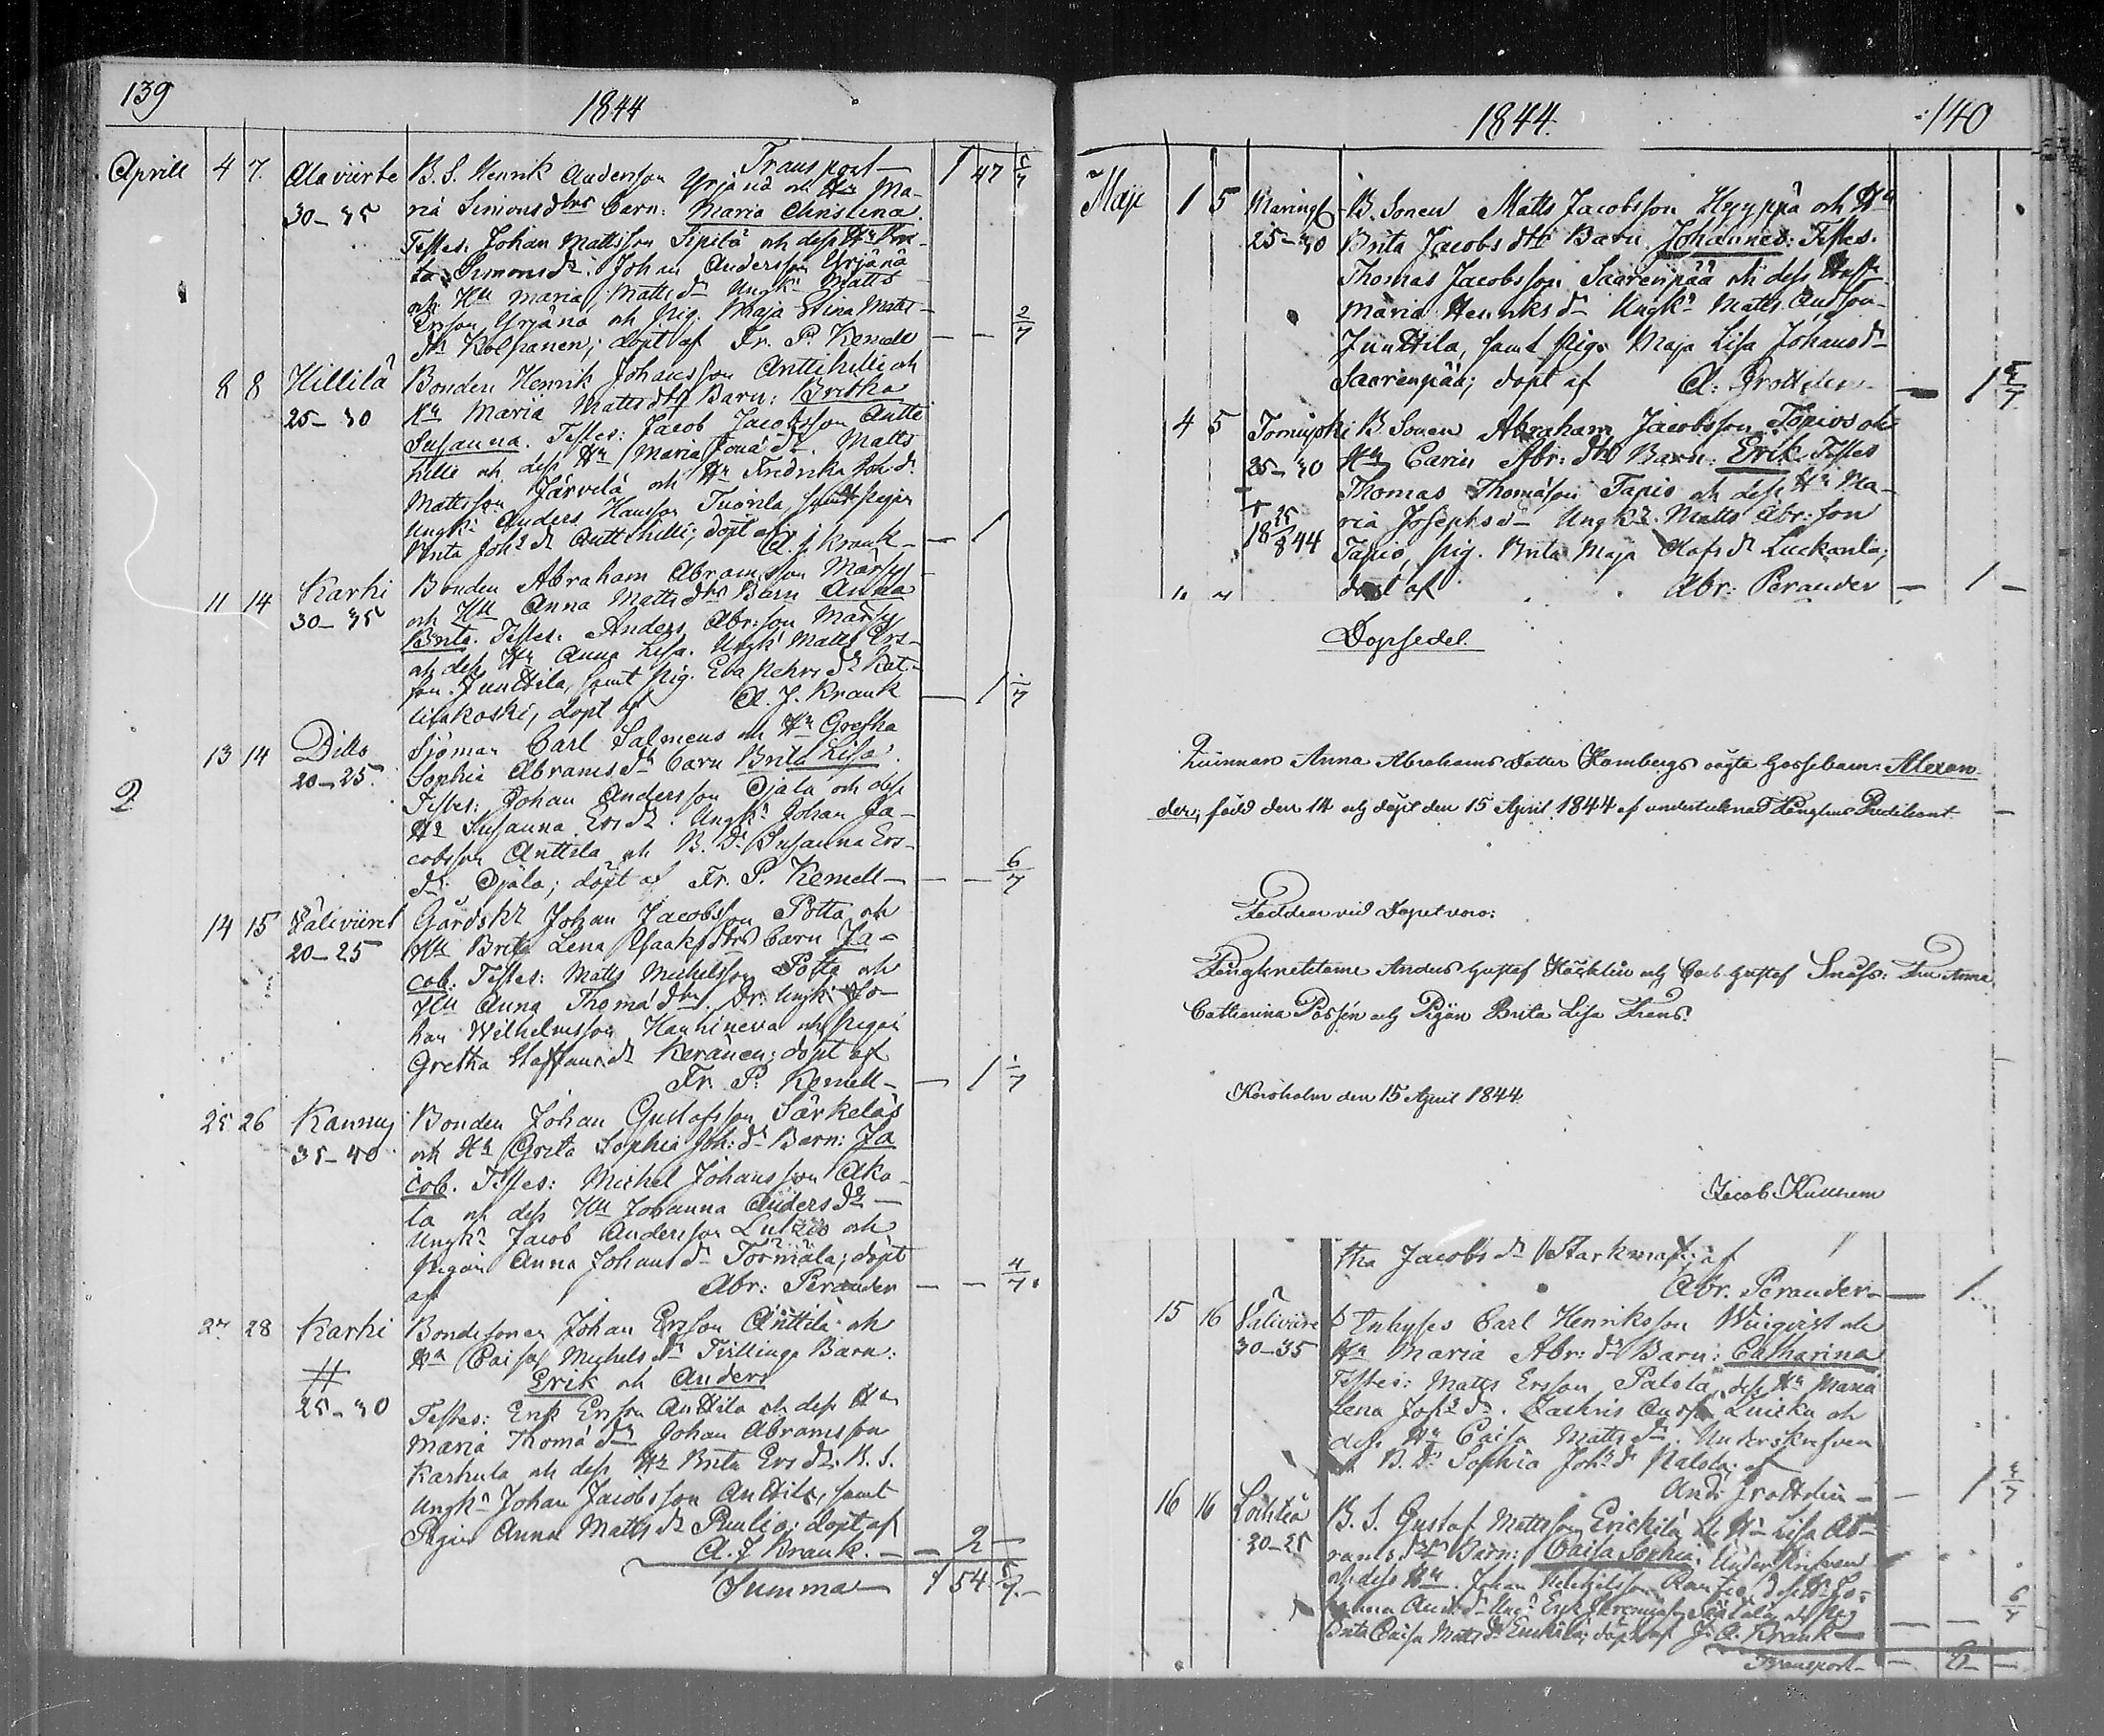 139
1844
Aprill 4 7. Alaviirte B. S. Henrik Andersson Yrjänä och Hu Ma-
Transport 1 47 5/7
30-35 ria Simonsdtrs barn: Maria Christina.
Testes. Johan Mattsson Sipilä och dess Hu
Simonsdr. Johan Andersson Yrjänä
och Hu Maria Mattsdr Ungk. Matts
Ersson Yrjänä och pig. Maja Stina Matts-
dr Kolpanen; döpt af Fr. P. Kemell — — 2/7
8 8 Hillilä Bonden Henrik Johansson Anttihilli och
25-30 Hu Maria Mattsdtrs Barn: Britha
Susanna. Testes: Jacob Jacobsson Antti
hilli och dess Hu Maria Jonædr. Matts
Mattsson Järvelä och Hu Fredrika Joh.dr
Ungk. Anders Hansson Tuorila, samt pigan
Brita Joh. dr Anttihilli; döpt af A. J. Krank — 1
11 14 Karhi Bonden Abraham Abramsson Märsy
30-35 och Hu Anna Mattsdtrs Barn Anna
Brita. Testes. Anders Abr:son Märsy
och dess Hu Anna Lisa. Ungk. Matts Ers-
son Junttila, samt pig. Eva Pehrsdr Kat-
tilakoski, döpt af A. J. Krank — 1 1/7
13 14 Ditto Sjöman Carl Salmens och Hu Gretha
20-25. Sophia Abramsdr barn Brita Lisa.
2
Testes: Johan Andersson Ojala och dess
Hu Susanna Ersdr. Ungk. Johan Ja-
cobsson Anttila och B. Dr. Susanna Ers-
dr. Ojala; döpt af Fr. P. Kemell — — 6/7
14 15 Wäliviiret Gårdskr Johan Jacobsson Potta och
20-25 Hu Brita Lena Isaksdtrs barn Ja-
cob. Testes: Matts Michelsson Potta och
Hu Anna Thomædtr. Dr. Ungk. Jo-
han Wilhelmsson Hanhineva och pigan
Gretha Staffansdr Keränen; döpt af
Fr. P. Kemell — 1 1/7
25 26 Kannus Bonden Johan Gustafsson Särkelä
35-40 och Hu Greta Sophia Joh: dr Barn: Ja
cob. Testes: Michel Johansson Ako-
la och dess Hu Johanna Andersdr —
Ungk. Jacob Andersson Lukio och
pigan Anna Johansdr Törmälä; döpt
af Abr: Perander — — 4/7.
27 28 Karhi Bondesonen Johan Ersson Anttila och
# Hu Caisa Michelsdr Tvillinge Barn:
Erik och Anders
25-30 Testes: Erik Ersson Anttila och dess Hu
Maria Thomædr Johan Abramsson
Karhula och dess Hu Brita Ersdr. B. S.
Ungk. Johan Jacobsson Anttila, samt
Pigan Anna Mattsdr Paulio; döpt af
A. J. Krank. — — 2 —
Summa — 1 54 5/7.—
1844.
140
Maji 1 5 Maringb. B. Sonen Matts Jacobsson Hyyppä och Hu
25-30 Brita Jacobsdtrs Barn Johannes: Testes.
Thomas Jacobsson Saarenpää och dess Hustr.
Maria Henriksdr Ungk. Matts Andson
Junttila, samt pigan Maja Lisa Johansdr
Saarenpää; döpt af A: Drottelin — 1 5/7
4 5 Tomujoki B. Sonen Abraham Jacobsson Tapios och
25-30 Hu Carin Abr: dtrs Barn: Erik. Testes
Thomas Thomason Tapio och dess Hu Ma-
ria Josephsd. Ungk. Matts Abr: son
† 25/8 1844 Tapio, pig. Brita Maja Olofsdr Luckarila;
döpt af Abr: Perander — 1 —
Dopsedel.
Qvinnan Anna Abrahams Dotter Hambergs oägta Gossebarn: Alexan-
der, född den 14 och döpt den 15 April 1844 af undertecknad Fängelse Predikant.
Faddrar vid Dopet voro:
Fångknektarne Anders Gustaf Häcklin och Carl Gustaf Smuss: Fru Anna
Catharina Possén och Pigan Brita Lisa Frans.
Korsholm den 15 April 1844
Jacob Kullhem
tha Jacobsdr Starkman; af
Abr. Perander — 1
15 16 Wälivirre Inhyses Carl Henriksson Winqvist och
30-35 Hu Maria Abr: dr Barn: Catharina
Testes: Matts Ersson Palola, dess Hu Maria
Lena Joh. dr. Zachris Andss. Luicku och
dess Hu Caisa Matts dr. Underskrefven
B. Dr. Sophia Joh. dr Palola; af
And: Drottelin — — 1 5/7
16 16 Lochteå B. S. Gustaf Mattsson Erickilä och Hu Lisa Ab-
20-25 rams dtrs Barn: Caisa Sophia. Underskrefven
och dess Hu. Johan dess Hu Jo-
hanna And. dr Ung. Erik och Pig
Brita Caisa Matts dr; döpt af J. A. Krank — — 6/7
Transport — 6 —